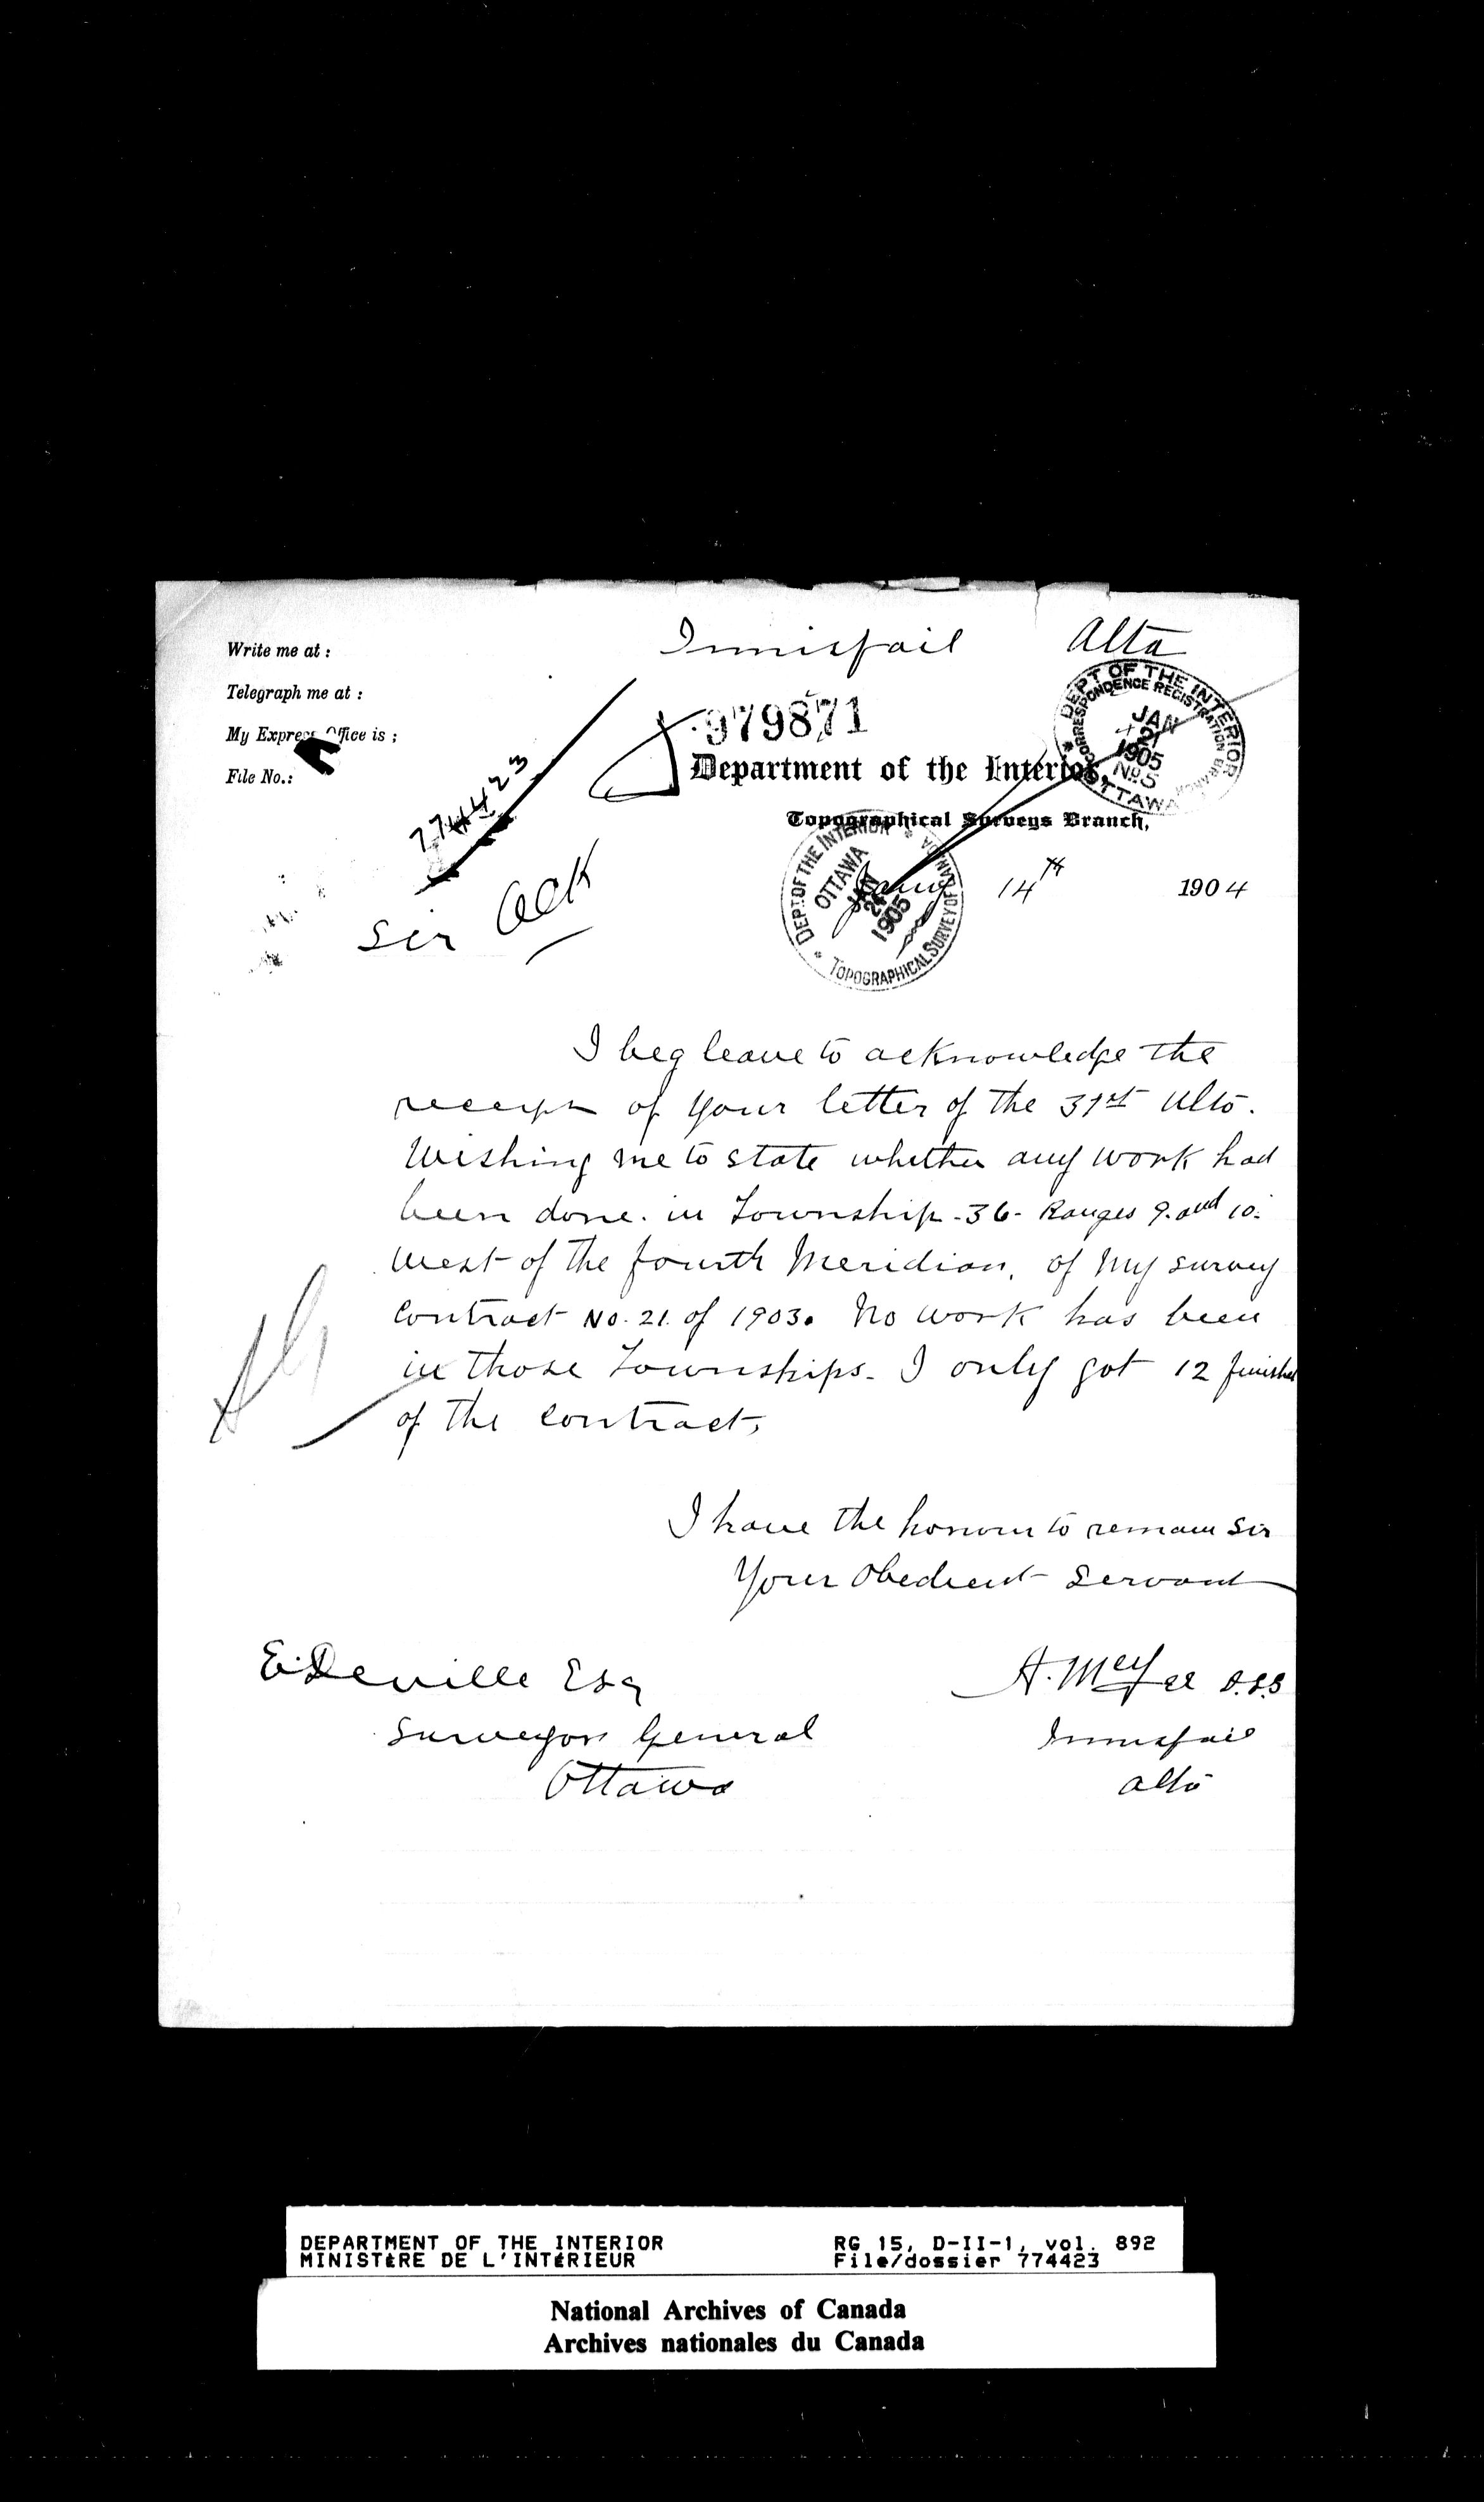 Write me at :
Innisfail Alta
Telegraph me at :
My Express Office is ;
File No.:
979871
774423
DEPT OF THE INTERIOR
CORRESPONDENCE REGISTRATION BRANCH
JAN
21
1905
No. 5
OTTAWA
Department of the Interior,
Topographical Surveys Branch,
DEPT OF THE INTERIOR
OTTAWA
JAN
1905
TOPOGRAPHICAL SURVEY OF CANADA
Jany 14th 1904
Ack
Sir
I beg leave to acknowledge the
receipt of your letter of the 31st Ulto.
Wishing me to state whether any work had
been done. in Township - 36 - Ranges 9. and 10.
West of the fourth Meridian, of my survey
Contract No. 21. of 1903. No work has been
in those Townships. I only got 12 finished
of the contract,
I have the honour to remain Sir
Your Obedient Servant
E. Deville Esq
A. McFee D.L.S
Surveyor General
Innisfail
Ottawa
Alta
DEPARTMENT OF THE INTERIOR
MINISTÈRE DE L'INTÉRIEUR
RG 15, D-II-1, vol. 892
File/dossier 774423
National Archives of Canada
Archives nationales du Canada